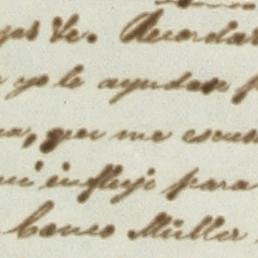 Ve. Recordar
yo le ayudase p
a, que me escus
mi influjo para
banco Müller